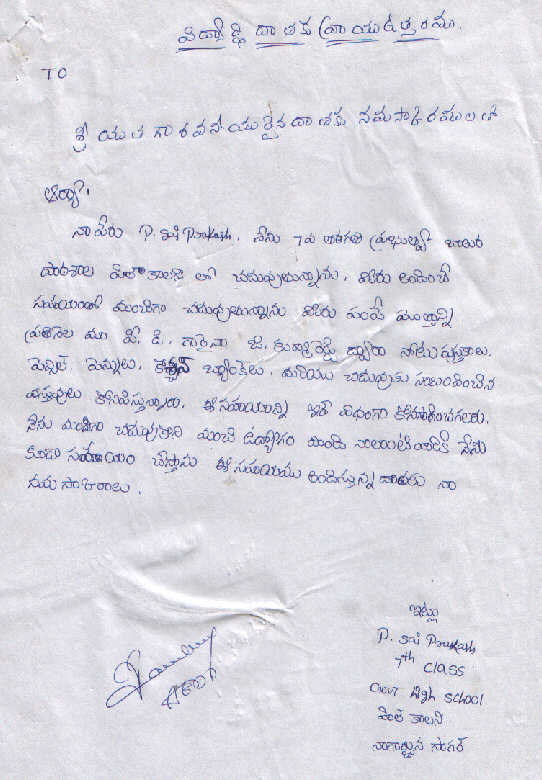 విద్యార్థి దాతకు వ్రాయు ఉత్తరము.
TO
శ్రీ యుత గౌరవనీయులైన దాతకు నమస్కారములతో
ఆర్యా,
నా పేరు P. Sri Prakash. నేను 7వ తరగతి ప్రభుత్వ బాలుర
పాఠశాల హిల్ కాలనీ లో చదువుతున్నాను. మీరు అందించే
సహాయంతో మంచిగా చదువుతున్నాను మీరు పంపే మొత్తాన్ని
మా పి. డి. గారైన జి. ద్వారా నోటు పుస్తకాలు.
పెన్సిల్ పెన్నులు. మరియు చదువుకు సంబంధించిన
వస్తువులు కొనిపిస్తున్నారు. ఈ సహాయాన్ని ఇదే విధంగా కొనసాగించగలరు.
నేను మంచిగా చదువుకొని మంచి ఉద్యోగం పొంది నాలాంటి వారికి నేను
కూడా సహాయం చేస్తాను ఈ సహాయము అందిస్తున్న దాతకు నా
నమస్కారాలు.
ఇట్లు
P. Sri Prakash
7th class
Govt High School
హిల్ కాలని
నాగార్జున సాగర్